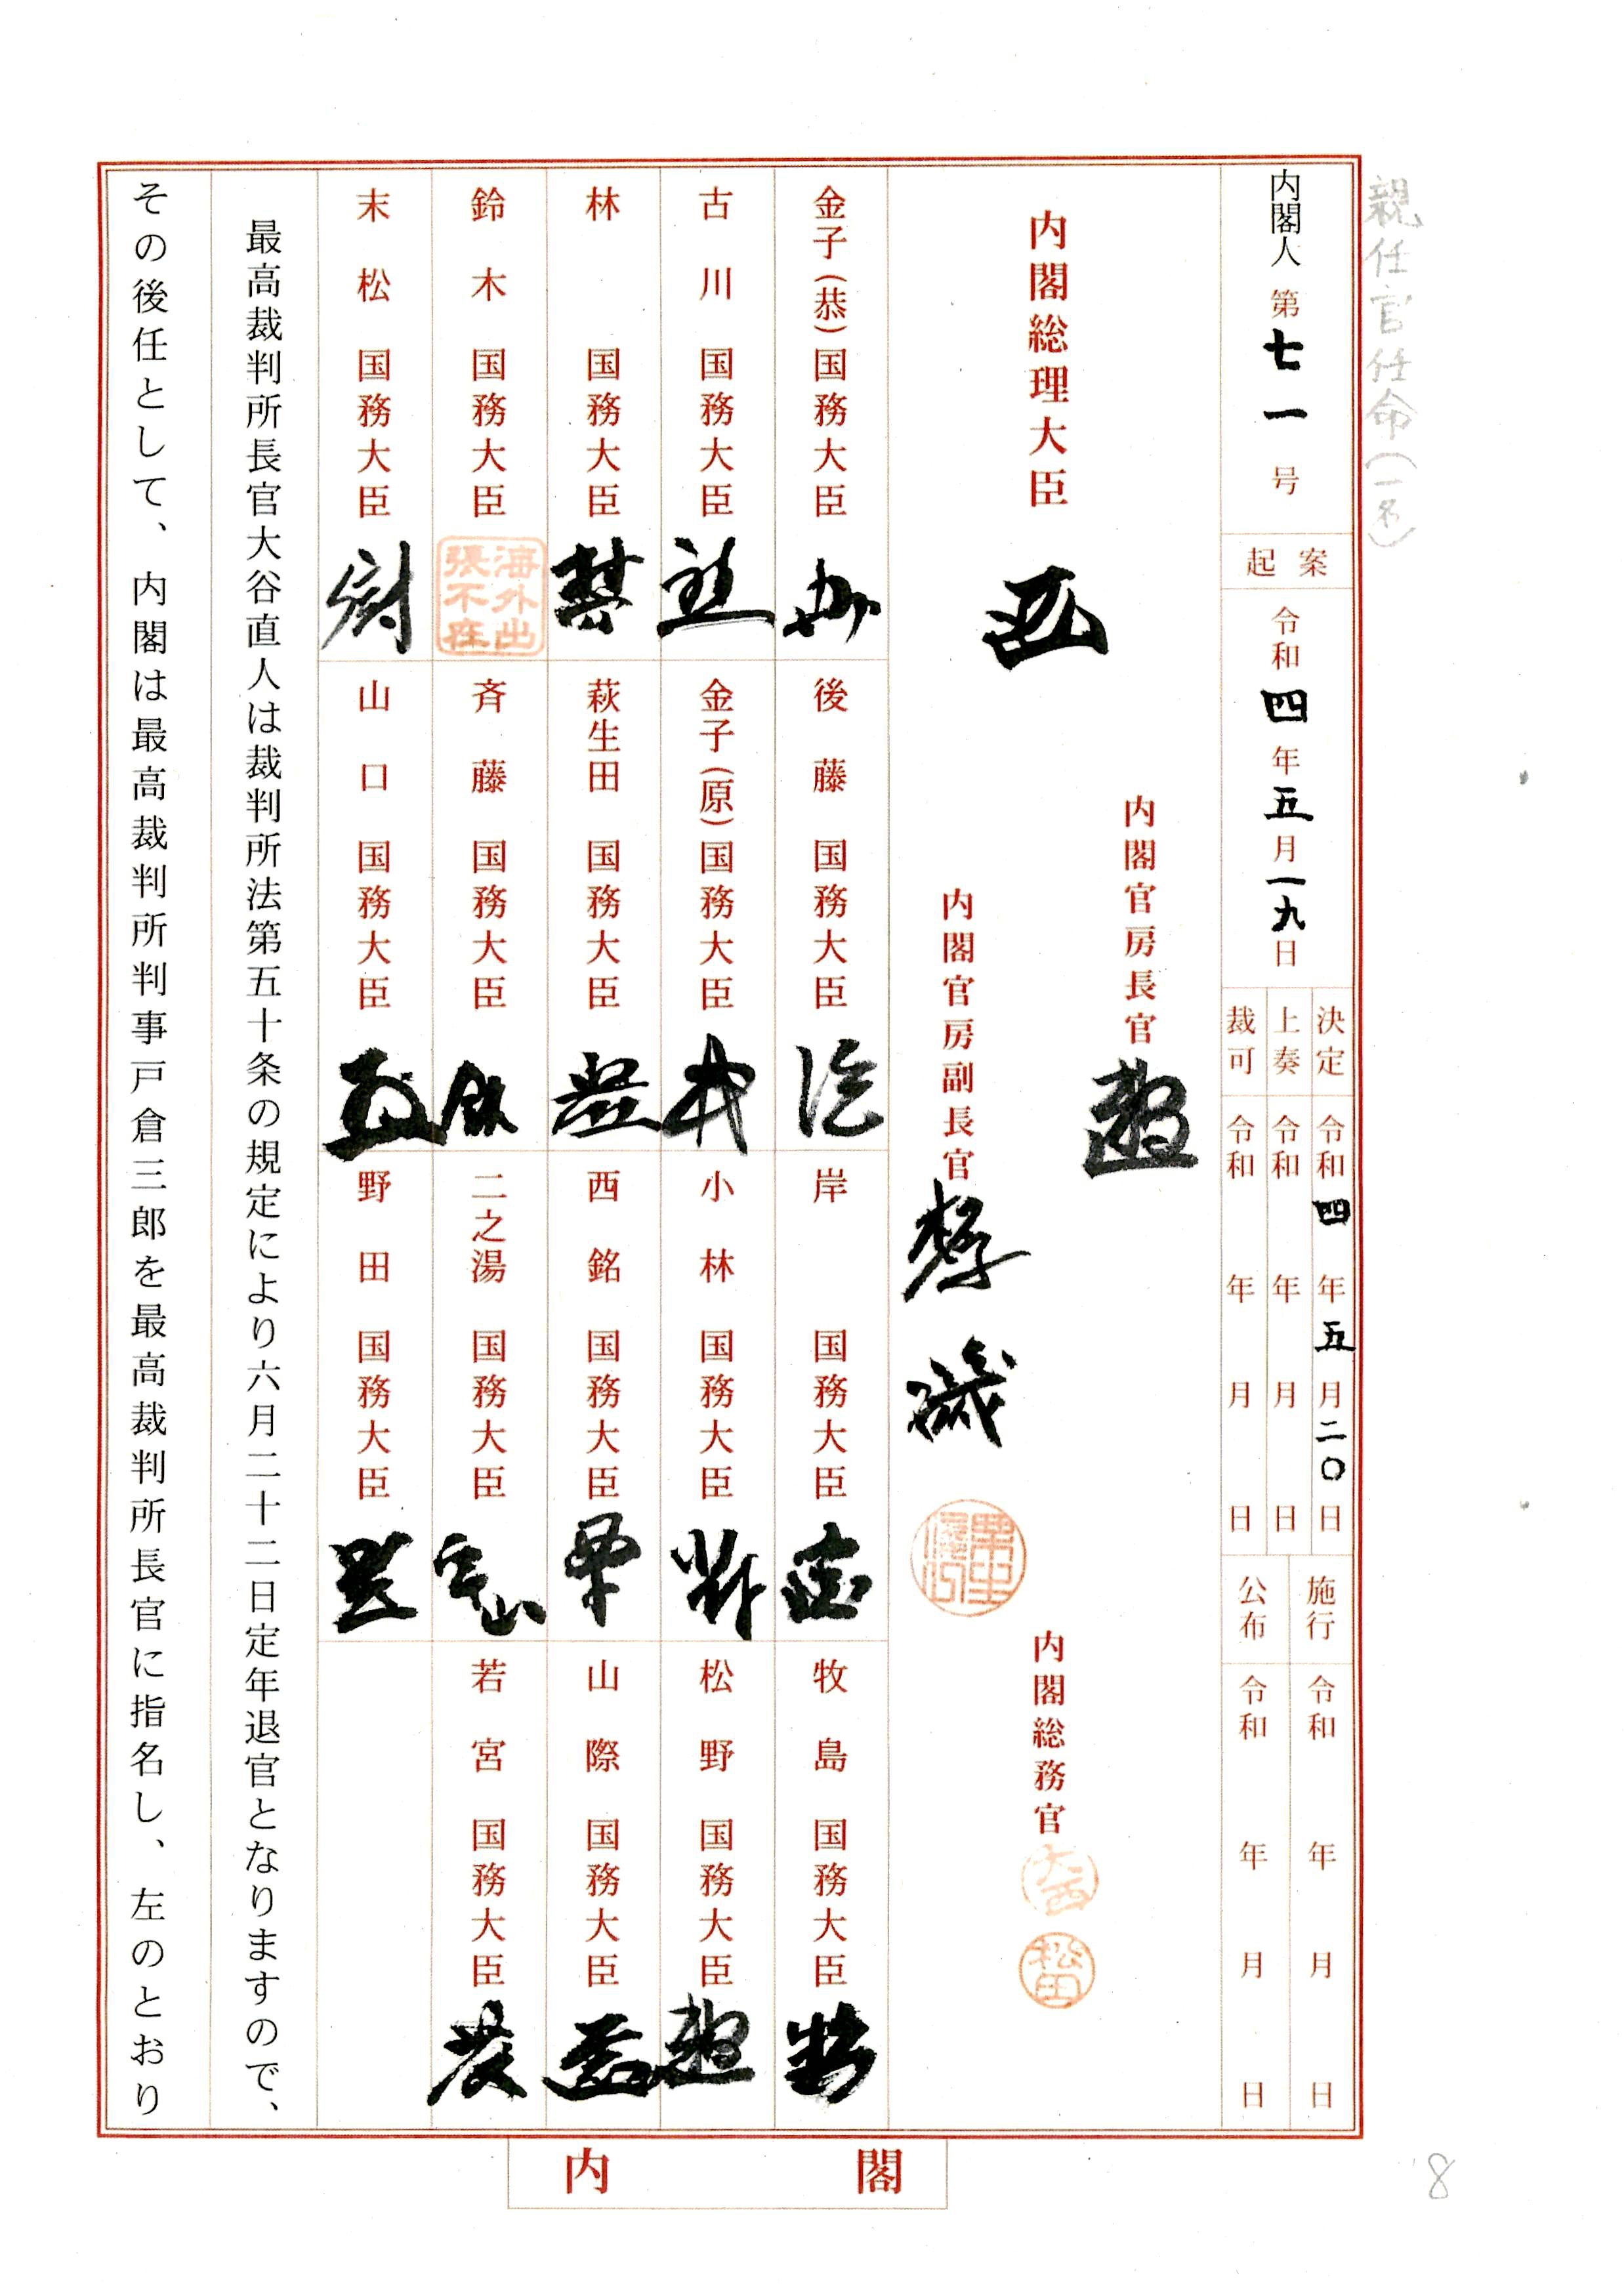 親任官任命(一名)
内閣人 第七一号
起案
令和四年五月一九日
決定 令和四年五月二〇日
上奏 令和 年 月 日
裁可 令和 年 月 日
施行 令和 年 月 日
公布 令和 年 月 日
内閣官房長官
内閣総理大臣
内閣総務官
大西
松田
内閣官房副長官
金子(恭)国務大臣
後藤 国務大臣
岸 国務大臣
牧島 国務大臣
古川 国務大臣
金子(原)国務大臣
小林 国務大臣
松野 国務大臣
林 国務大臣
萩生田 国務大臣
西銘 国務大臣
山際 国務大臣
鈴木 国務大臣
海外出張不在
斉藤 国務大臣
二之湯 国務大臣
若宮 国務大臣
末松 国務大臣
山口 国務大臣
野田 国務大臣
最高裁判所長官大谷直人は裁判所法第五十条の規定により六月二十二日定年退官となりますので、
その後任として、内閣は最高裁判所判事戸倉三郎を最高裁判所長官に指名し、左のとおり
内閣
8